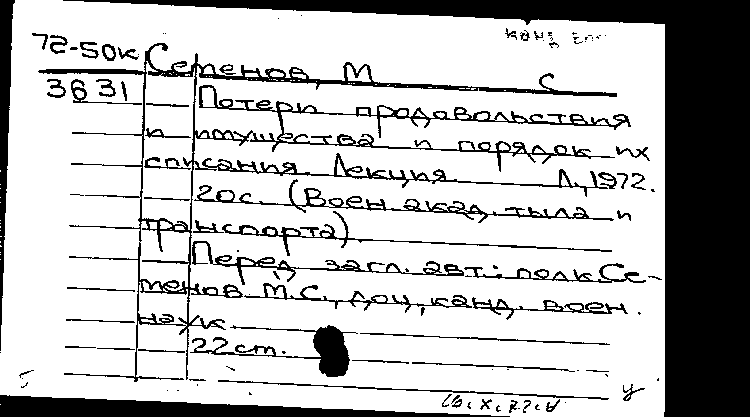 72-50к Семенов, М С
3631 Потери продовольствия
и имущества и порядок их
списания. Лекция. Л., 1972.
20с. (Воен. акад. тыла и
транспорта).
Перед загл. авт.: полк. Се-
менов М.С., доц., канд. воен.
наук.
22см.
у